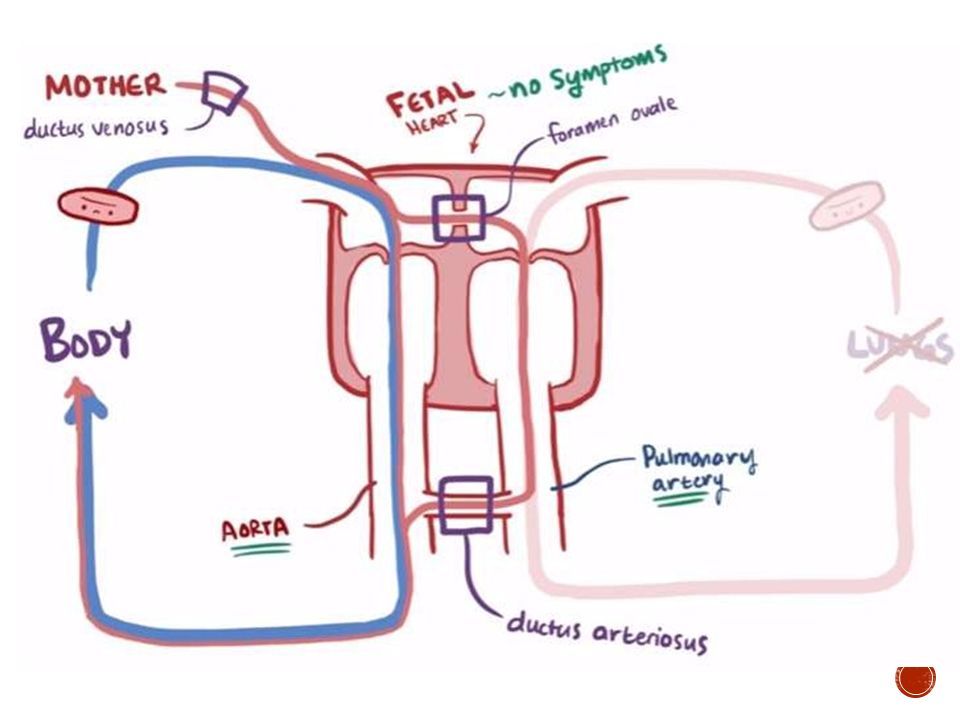 MOTHER
ductus venosus
FETAL ~no Symptoms
HEART
foramen ovale
BODY
LUNGS
Pulmonary
artery
AORTA
ductus arteriosus